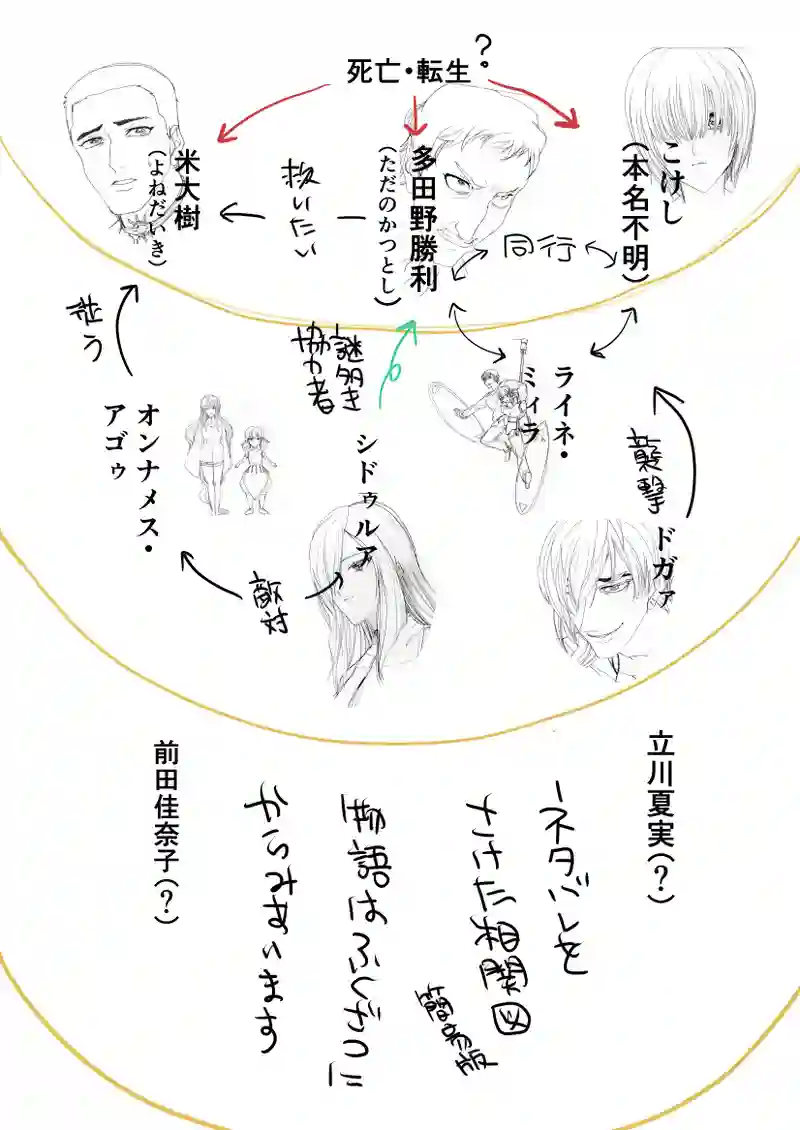 死亡・転生?
こけし
(本名不明)
多田野勝利
(ただのかつとし)
米大樹
(よねだいき)
救いたい
同行
従う
謎多き
協力者
ライネ・
ミィラ
襲撃
ドガァ
シドゥルア
オンナメス・
アゴゥ
敵対
立川夏実(?)
前田佳奈子(?)
ネタバレを
さけた相関図
簡易版
物語はふくざつに
からみあいます